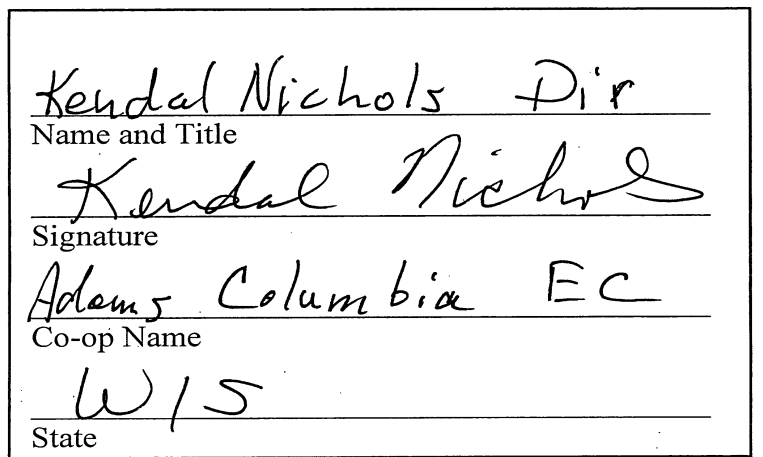 Kendal Nichols Dir
Name and Title
Kendal Nichols
Signature
Adams Columbia EC
Co-op Name
WIS
State